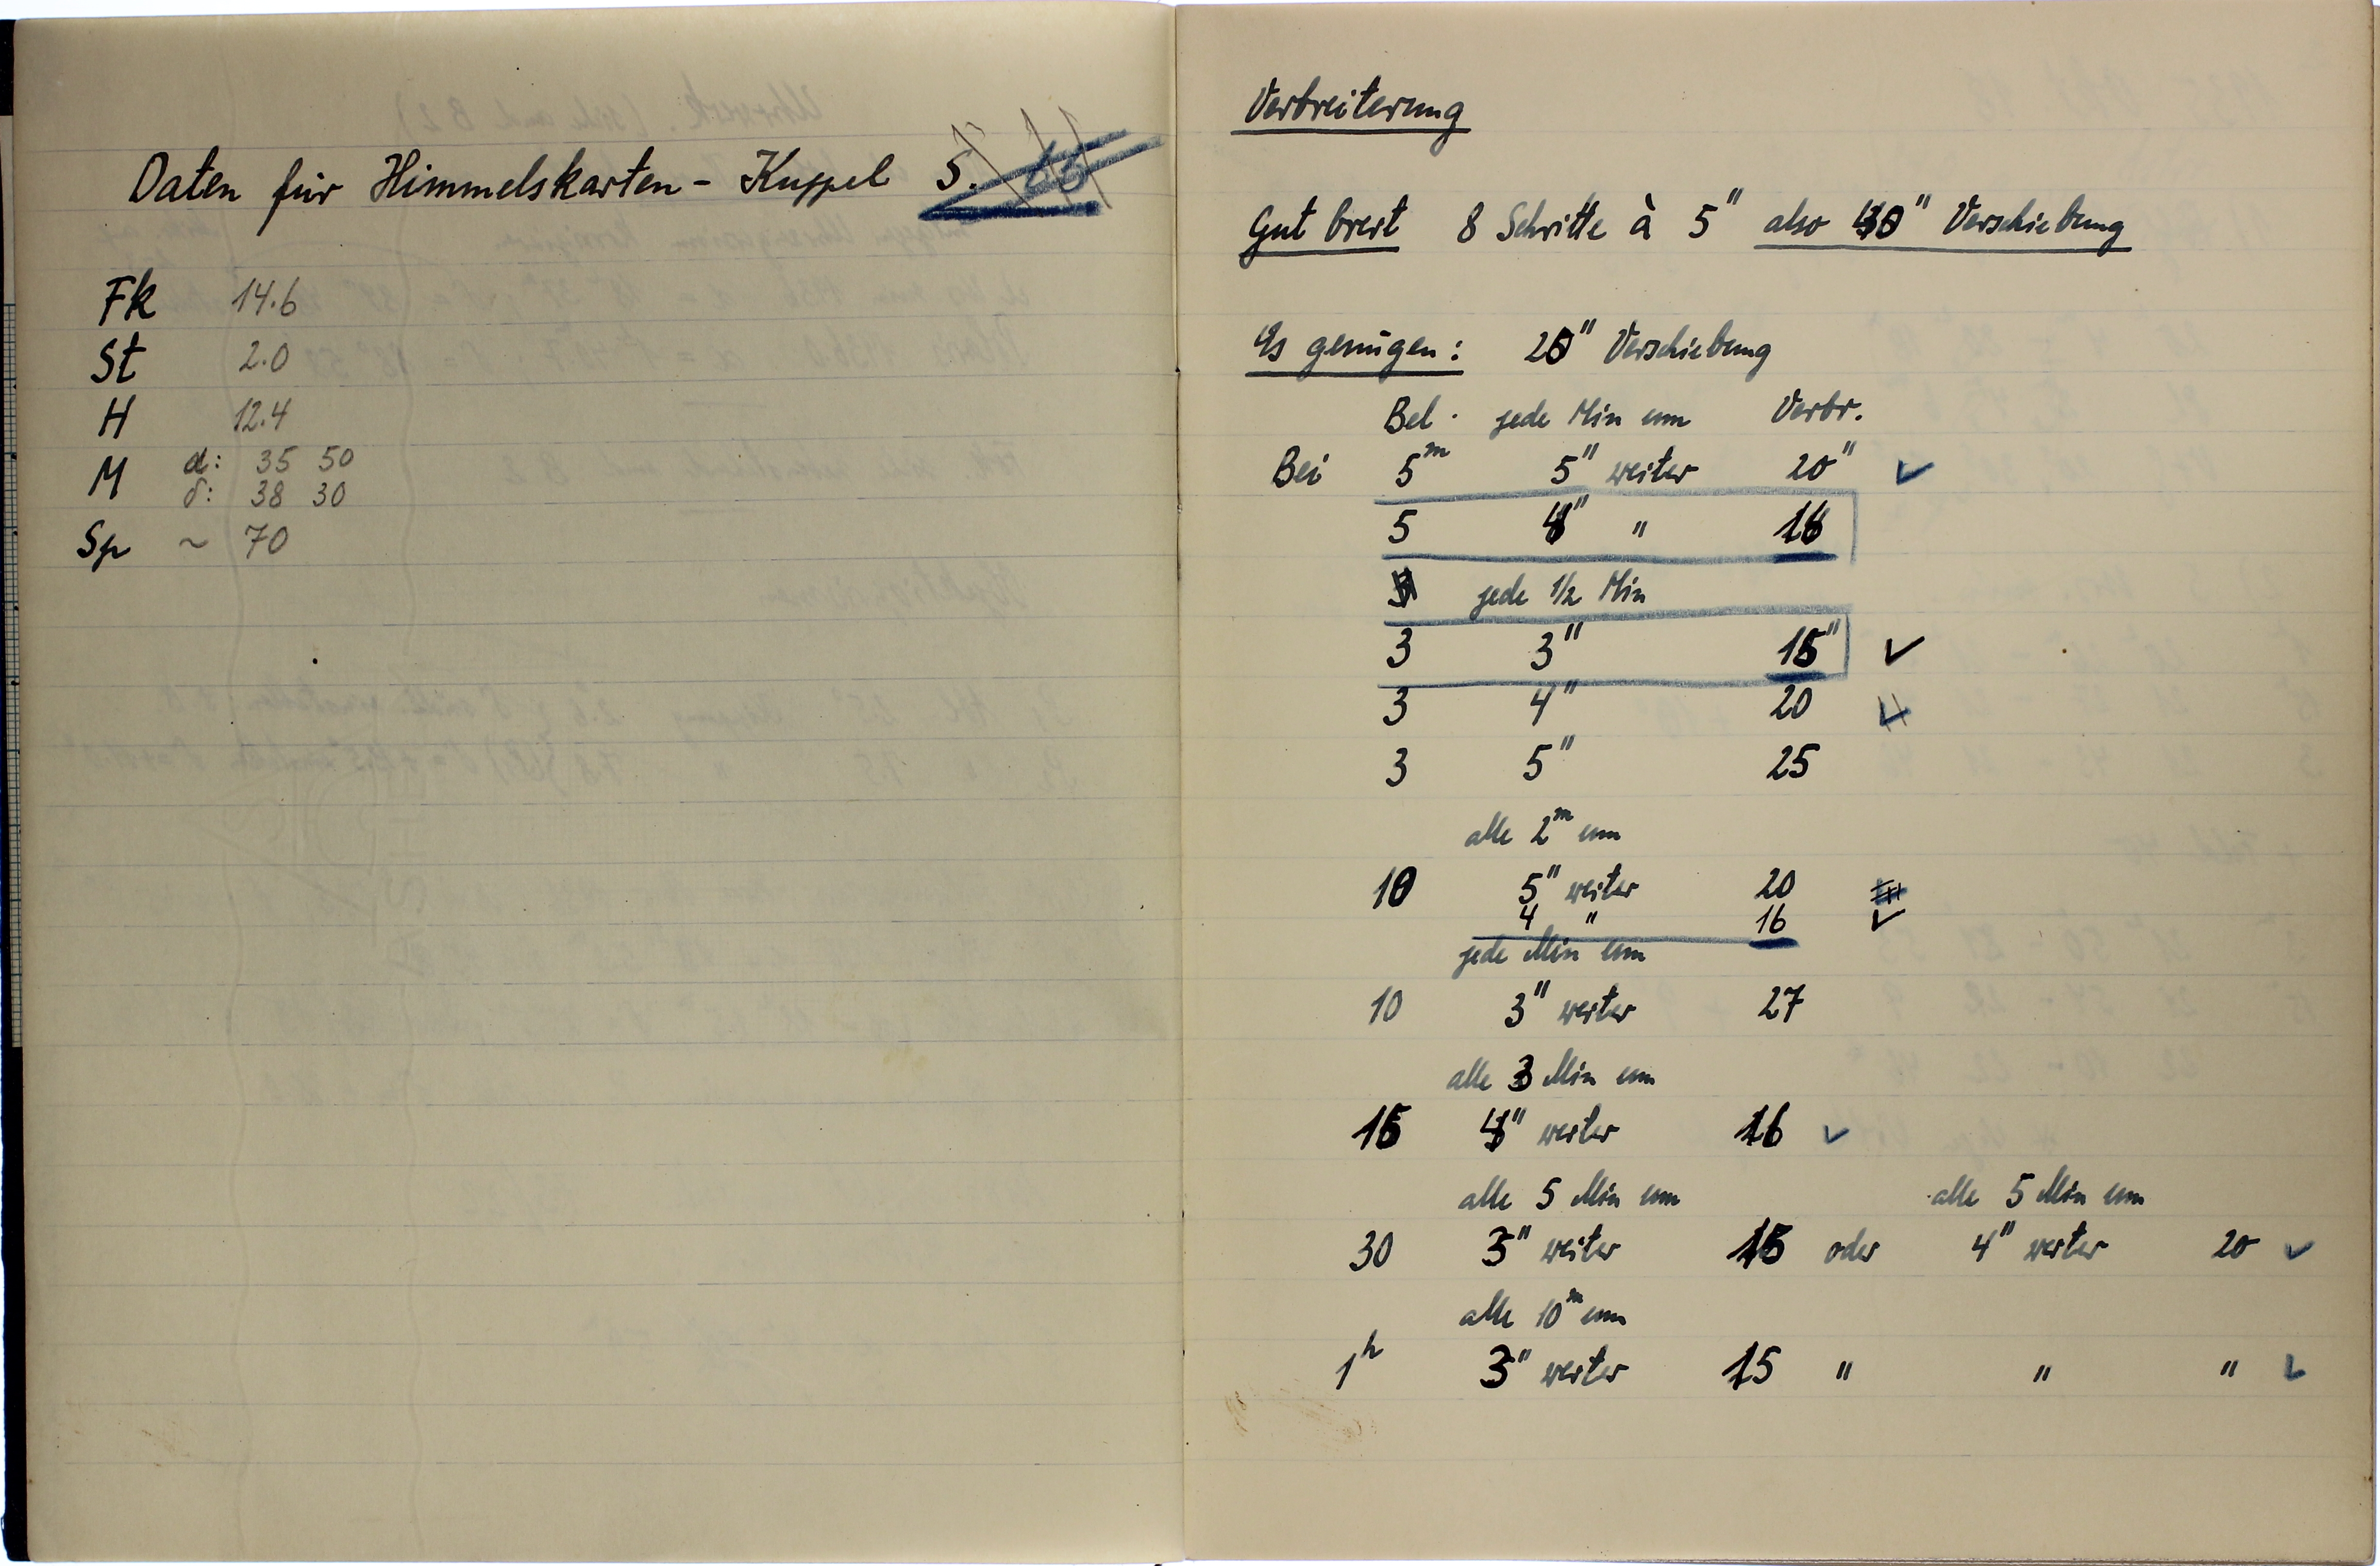 Daten für Himmelskarten - Kuppel S.
Fk 14.6
St 2.0
H 12.4
M α: 35 50
δ: 38 30
Sp ~ 70
Verbreiterung
Gut breit 8 Schritte à 5" also 40" Verschiebung
Es genügen: 20" Verschiebung
Bel. jede Min um Verbr.
Bei 5m 5" weiter 20" ✓
5 4" " 16
jede 1/2 Min
3 3" 15" ✓
3 4" 20
3 5" 25
alle 2m um
10 5" weiter 20
4 " 16 ✓
jede Min um
10 3" weiter 27
alle 3 Min um
15 4" weiter 16 ✓
alle 5 Min um alle 5 Min um
30 3" weiter 15 oder 4" weiter 20 ✓
alle 10m um
1h 3" weiter 15 " " " ✓